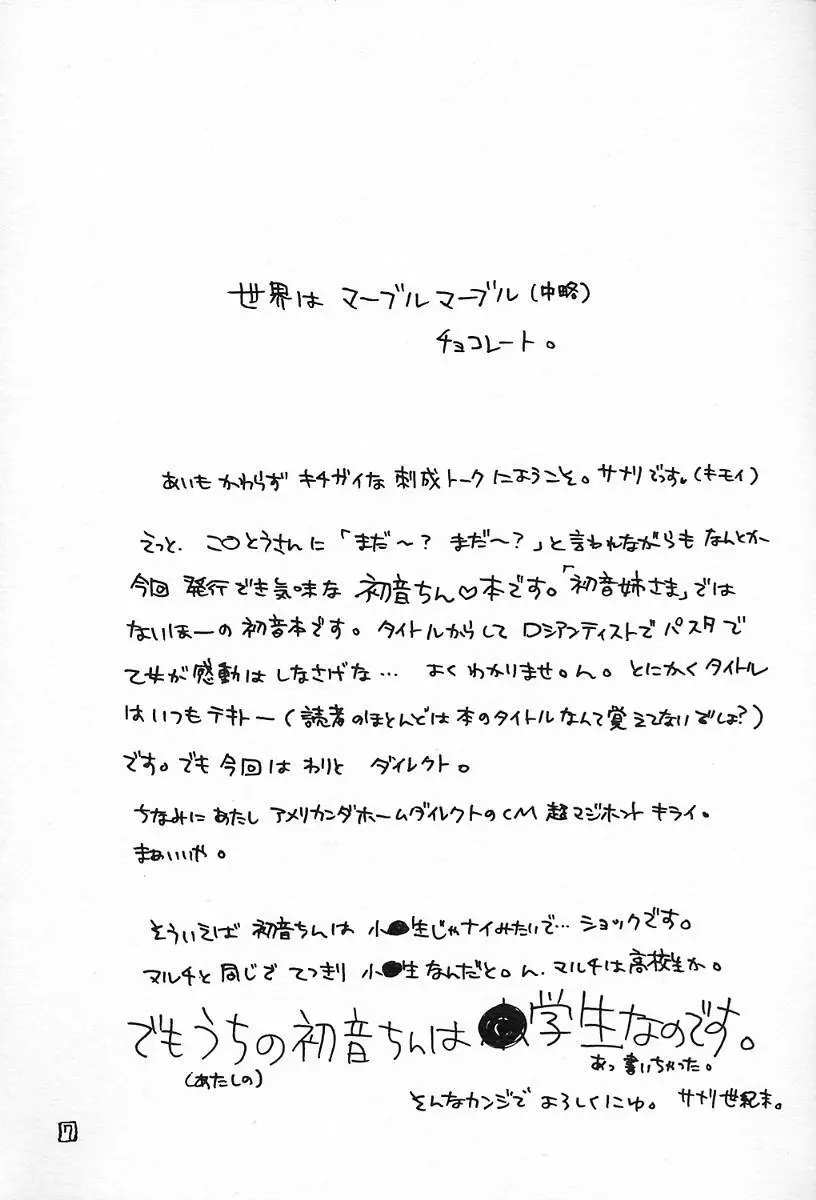 世界は マーブルマーブル(中略)
チョコレート。
あいもかわらず キチガイな 刺成トークにようこそ。サナリでっす。(キモイ)
えっと、こ〇とうさんに「まだ〜? まだ〜?」と言われながらも なんとか
今回 発行でき気味な 初音ちん♡本です。「初音姉さま」では
ないほーの初音本です。タイトルからして ロシアンティストで パスタで
乙女が感動は しなさげな… よくわかりませ。ん。とにかくタイトル
はいつもテキトー(読者のほとんどは本のタイトルなんて覚えてないでしょ?)
です。でも今回は わりと ダイレクト。
ちなみに あたし アメリカンダホームダイレクトのCM 超マジホント キライ。
まぁいいや。
そういえば 初音ちんは 小●生じゃナイみたいで… ショックです。
マルチと同じで てっきり 小●生なんだと。ん、マルチは高校生か。
でもうちの初音ちんは●学生なのです。
(あたしの)
あっ書いちゃった。
そんなカンジで よろしくにゅ。 サナリ世紀末。
7